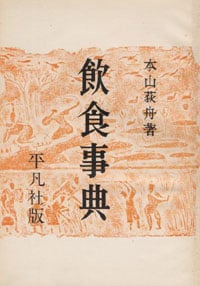 本山荻舟著
飲食事典
平凡社版